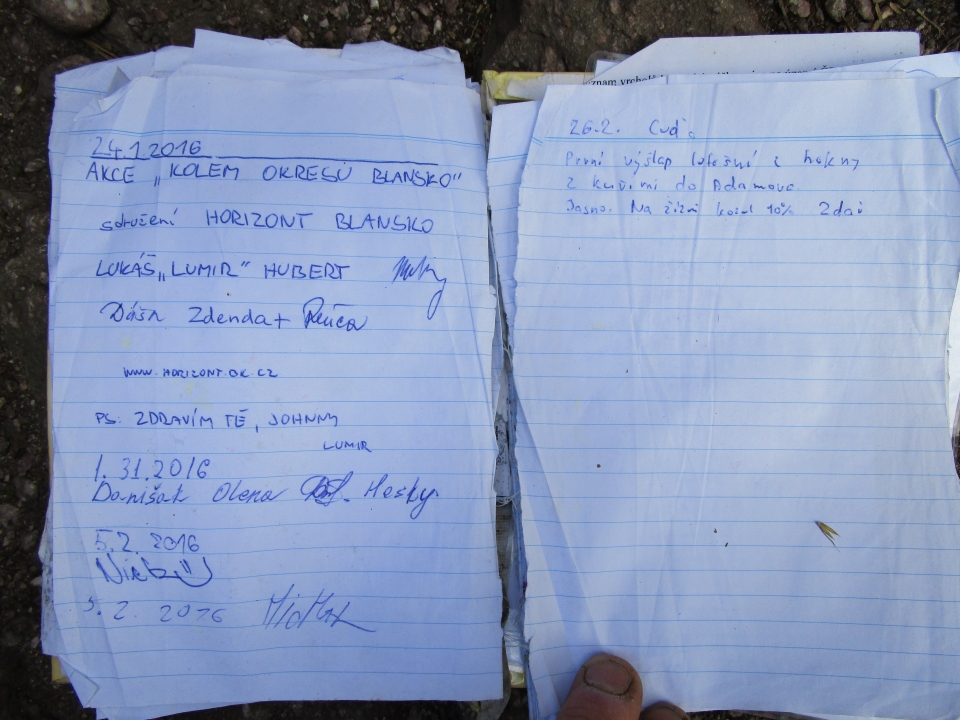 24.1.2016
AKCE „KOLEM OKRESU BLANSKO"
sdružení HORIZONT BLANSKO
LUKÁŠ „LUMIR" HUBERT
Dáša Zdenda + 
WWW.HORIZONT.OK.CZ
PS: ZDRAVÍM TĚ, JOHNNY
LUMIR
1.31.2016
Danišak Olena Hesky
5.2.2016
5.2.2016
26.2.
První výšlap letošní z
z kuřimi do Adamova
Jasno. Na žízni kozel 10% Zdař